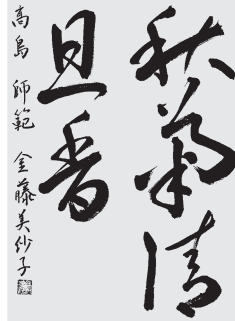 秋菊清
且香
高島 師範 金藤美紗子